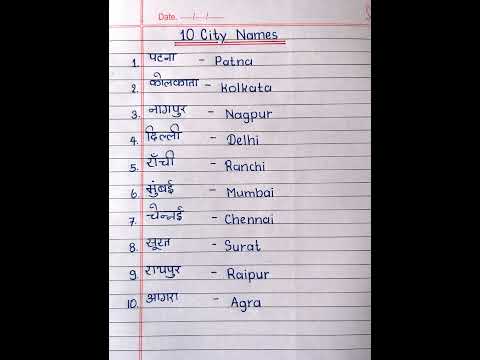 Date. __/__/__
10 City Names
1. पटना - Patna
2. कोलकाता - Kolkata
3. नागपुर - Nagpur
4. दिल्ली - Delhi
5. राँची - Ranchi
6. मुंबई - Mumbai
7. चेन्नई - Chennai
8. सूरत - Surat
9. रायपुर - Raipur
10. आगरा - Agra